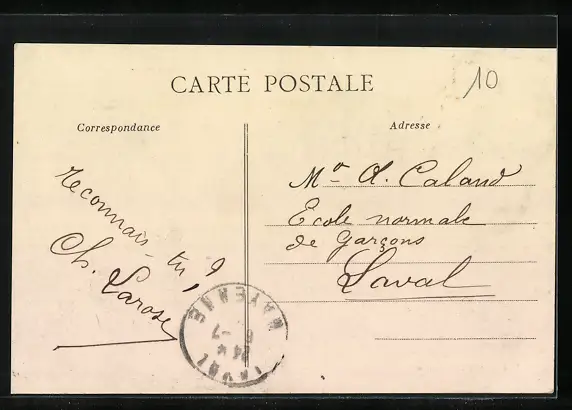 10
CARTE POSTALE
Correspondance
Adresse
reconnais-tu ?
Ch. Larose
Mr A. Caland
Ecole normale
de Garçons
Laval
LAVAL
MAYENNE
6-7